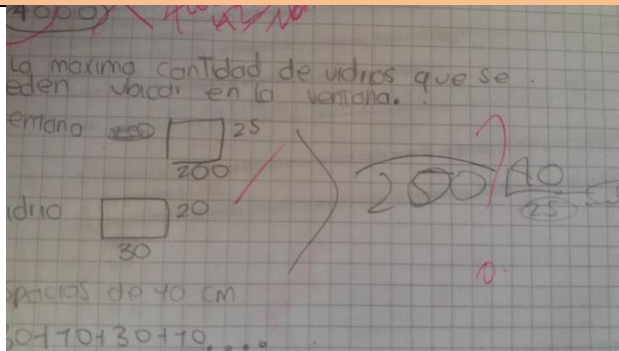 4000
La maxima cantidad de vidrios que se
eden ubicar en la ventana.
emano
25
200
idrio
20
30
200
40
25
spacios de 10 cm
30+10+30+10....